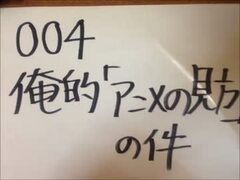 004
俺的「アニメの見方」
の件